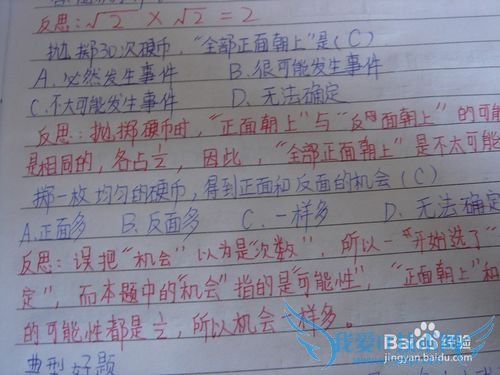 反思：√2 × √2 = 2
抛掷30次硬币，“全部正面朝上”是(C)
A. 必然发生事件 B. 很可能发生事件
C. 不大可能发生事件 D. 无法确定
反思：抛掷硬币时，“正面朝上”与“反面朝上”的可能
是相同的，各占½，因此，“全部正面朝上”是不太可能
掷一枚均匀的硬币，得到正面和反面的机会(C)
A. 正面多 B. 反面多 C. 一样多 D. 无法确定
反思：误把“机会”以为是“次数”，所以一开始选了“
定”，而本题中的“机会”指的是“可能性”，“正面朝上”和
的可能性都是½，所以机会一样多。
典型好题
Baidu 经验
jingyan.baidu.com